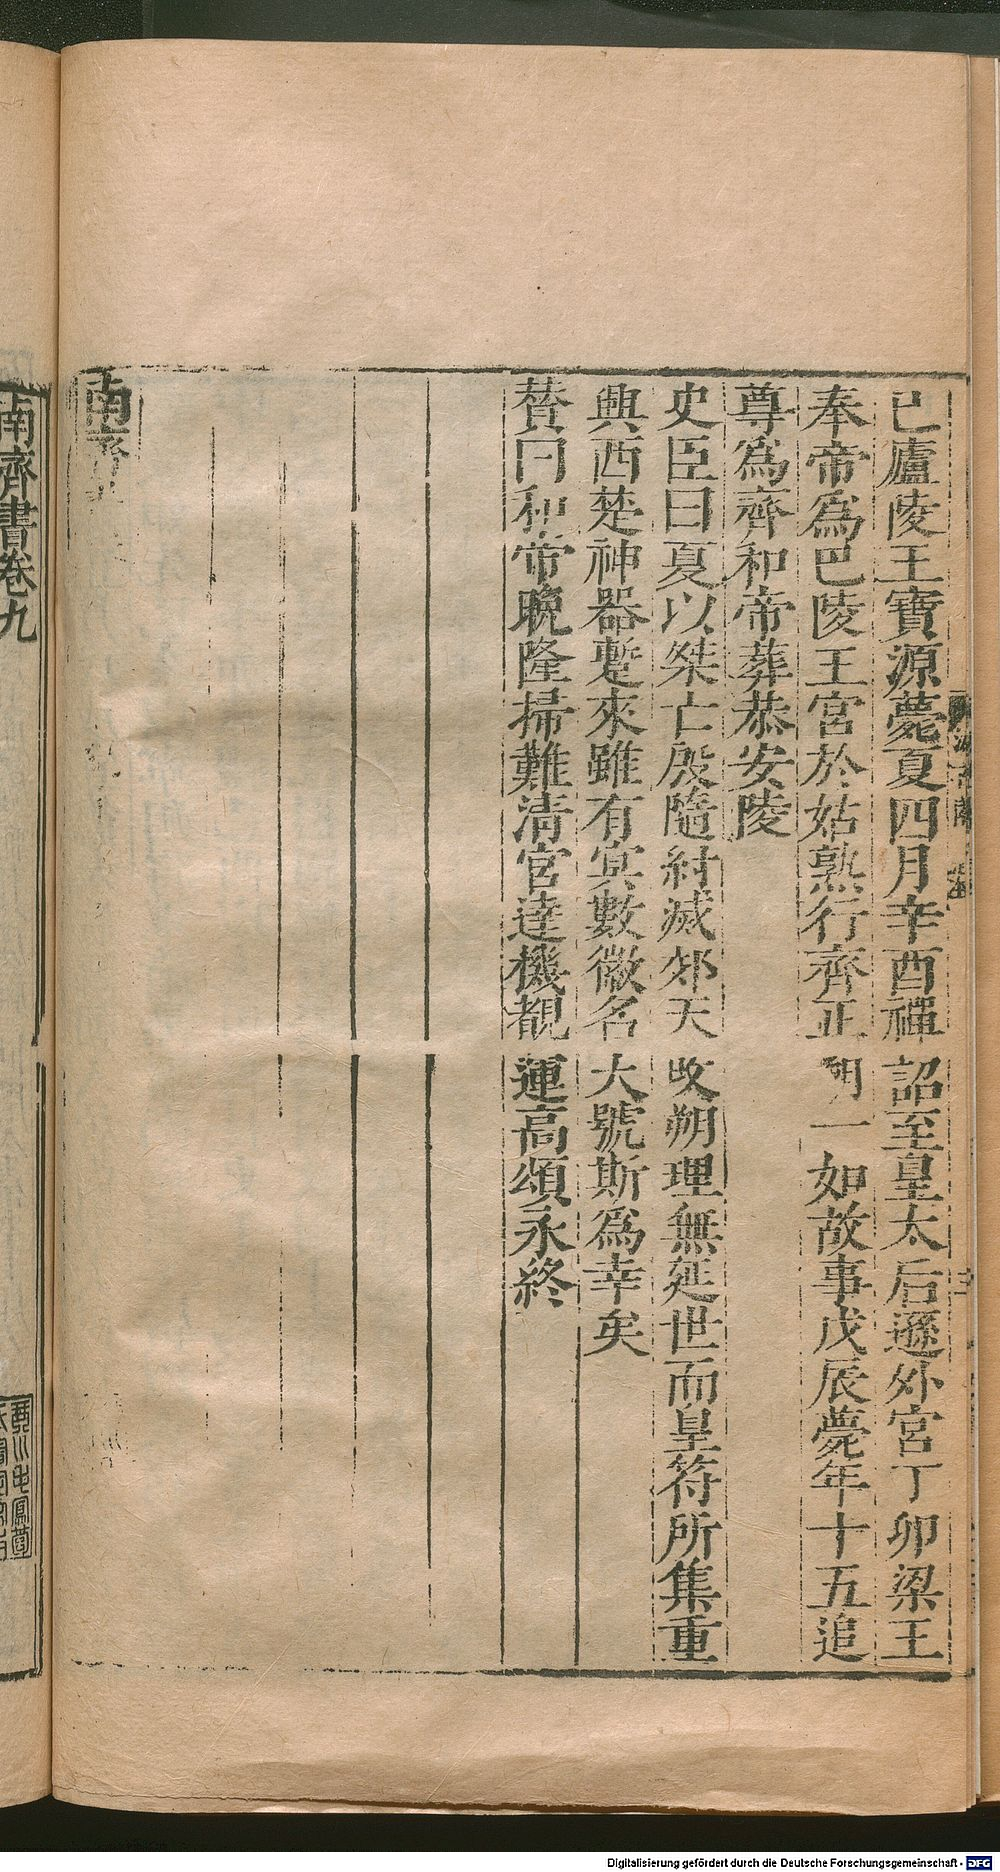 已廬陵王寶源薨夏四月辛酉禪詔至皇太后遜外宮丁卯梁王
奉帝爲巴陵王宮於姑熟行齊正朔一如故事戊辰薨年十五追
尊爲齊和帝葬恭安陵
史臣曰夏以桀亡殷隨紂滅郊天改朔理無延世而皇符所集重
興西楚神器蹔來雖有冥數徽名大號斯爲幸矣
贊曰和帝晚隆掃難清宮達機覩運高頌永終
南齊
南齊書卷九
Digitalisierung gefördert durch die Deutsche Forschungsgemeinschaft - DFG